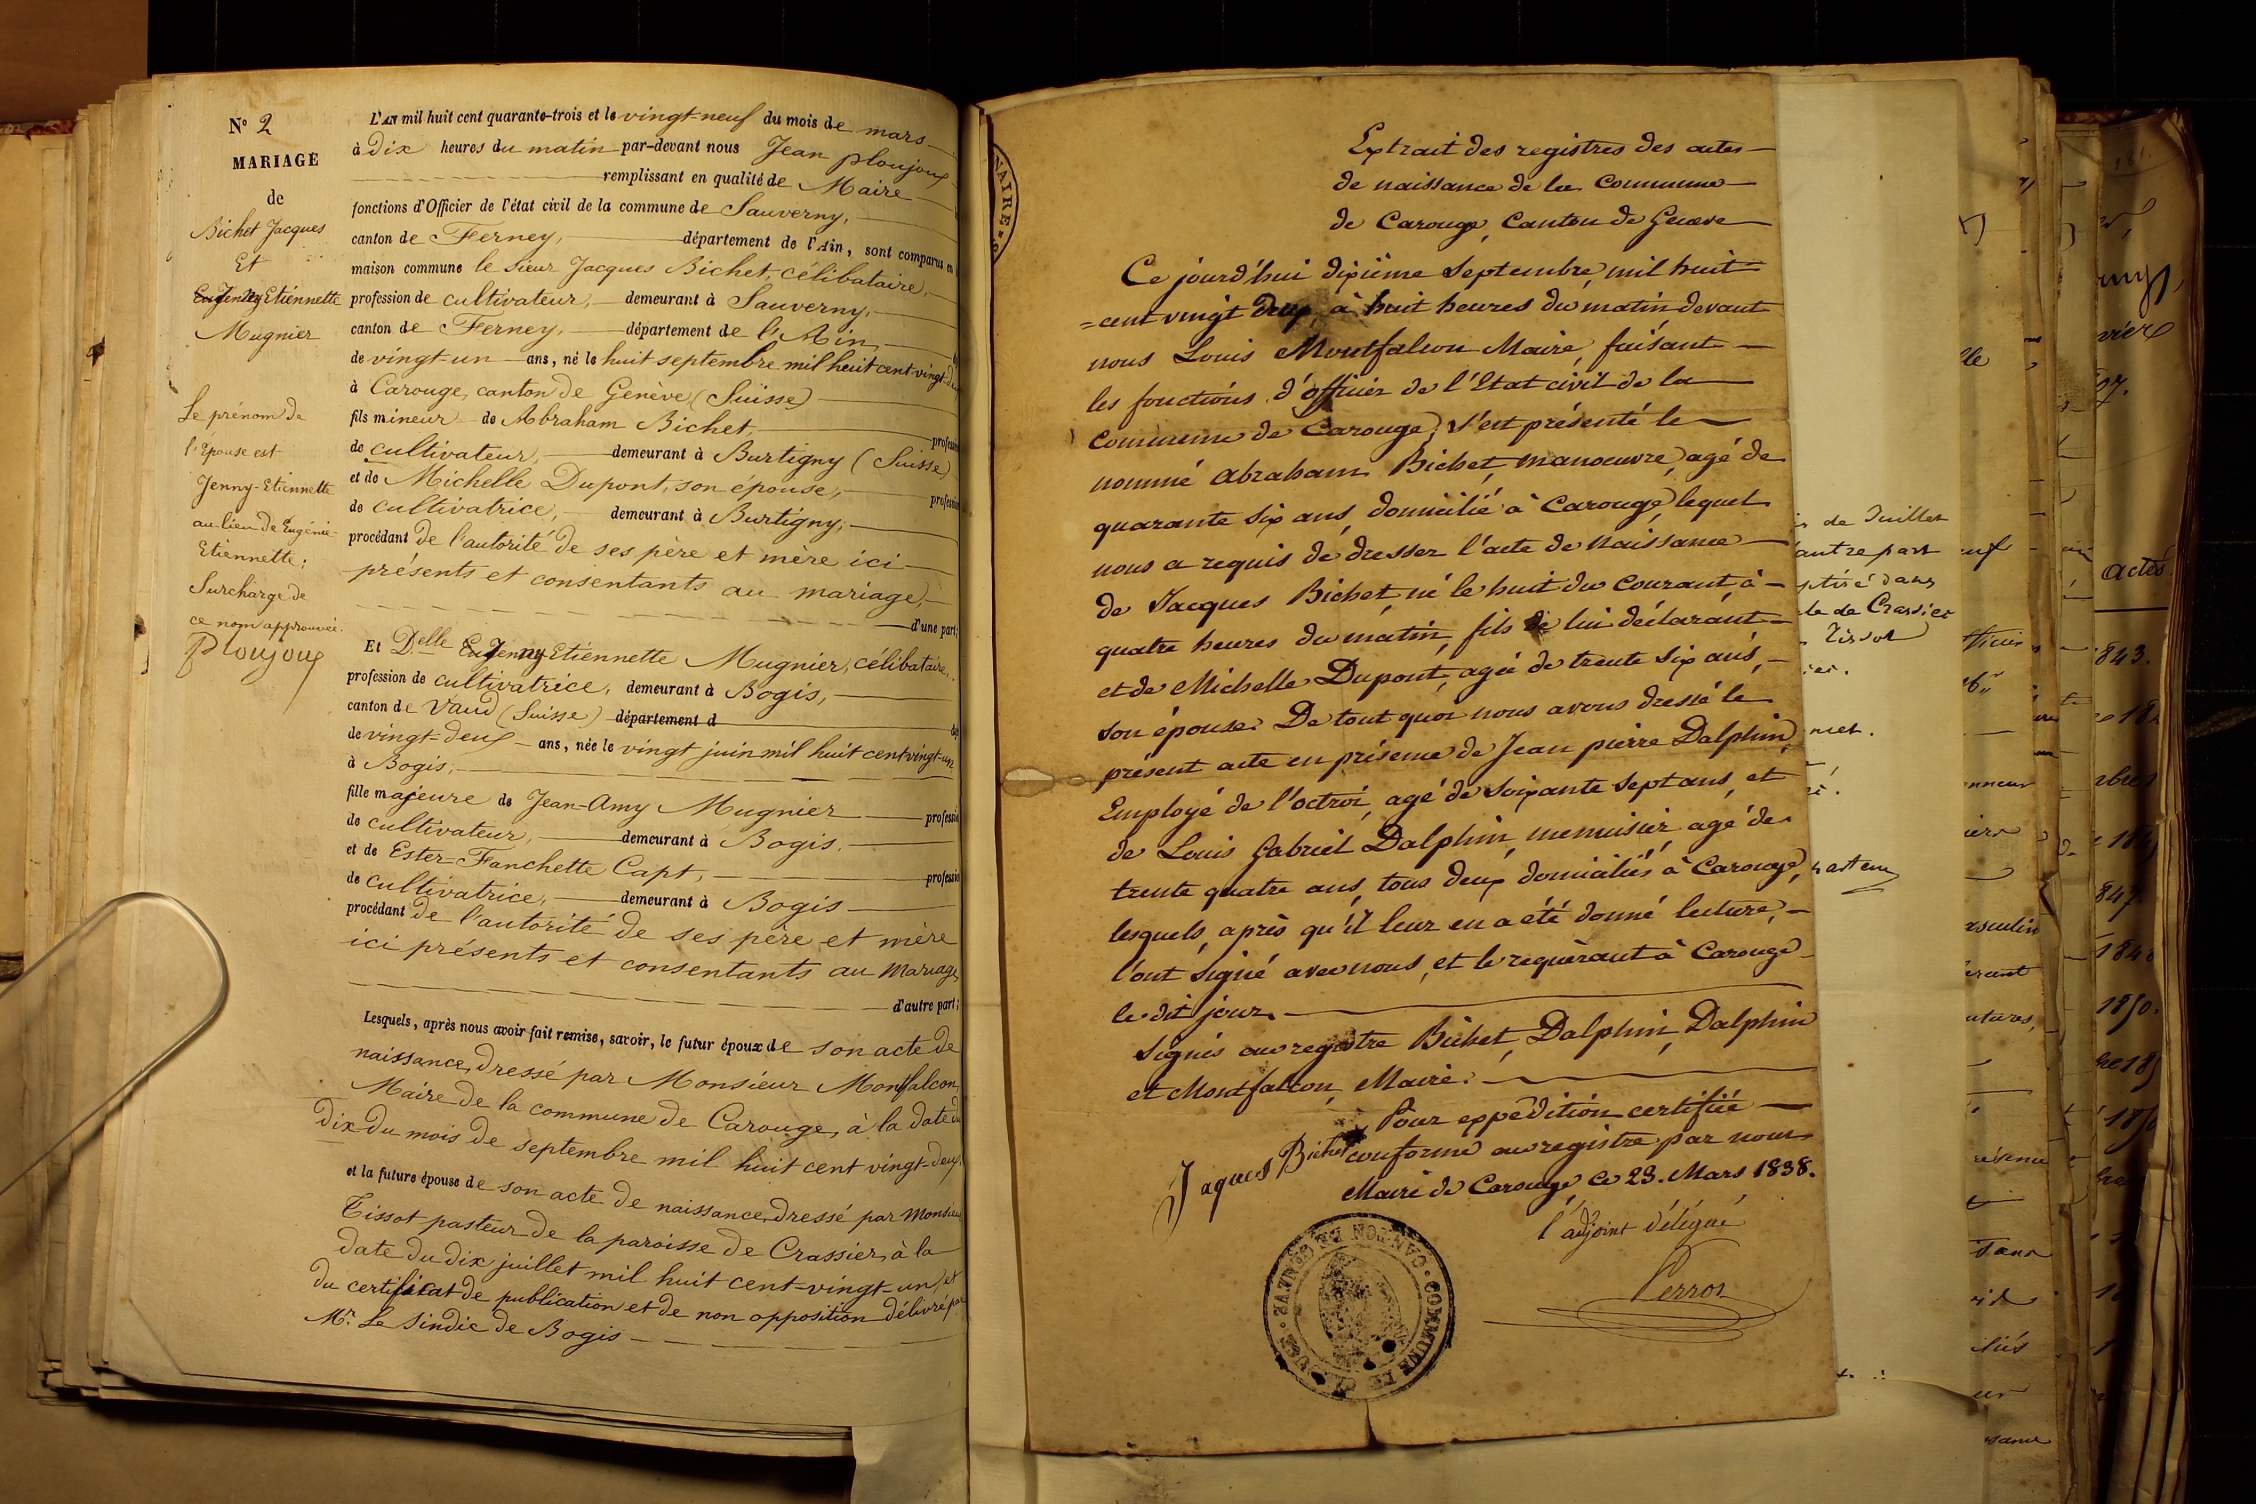 N° 2
MARIAGE
de
Bichet Jacques
Et
Jenny Etiennette
Mugnier
Le prénom de
l'Épouse est
Jenny-Etiennette
au lieu de Eugénie-
Etiennette;
Surcharge de
ce nom approuvée.
Ploujoux
L'AN mil huit cent quarante-trois et le vingt-neuf du mois de mars
à dix heures du matin par-devant nous Jean Ploujoux
remplissant en qualité de Maire
fonctions d'Officier de l'état civil de la commune de Sauverny,
canton de Ferney, département de l'Ain, sont comparus en
maison commune le sieur Jacques Bichet, célibataire,
profession de cultivateur, demeurant à Sauverny,
canton de Ferney, département de l'Ain,
de vingt un ans, né le huit septembre mil huit cent vingt-deux
à Carouge, canton de Genève (Suisse)
fils mineur de Abraham Bichet, profession
de cultivateur, demeurant à Burtigny (Suisse)
et de Michelle Dupont, son épouse, profession
de cultivatrice, demeurant à Burtigny,
procédant de l'autorité de ses père et mère ici
présents et consentants au mariage,
d'une part;
Et Delle Jenny Etiennette Mugnier, célibataire,
profession de cultivatrice, demeurant à Bogis,
canton de Vaud (Suisse) département d
de vingt-deux ans, née le vingt juin mil huit cent vingt-un
à Bogis,
fille majeure de Jean-Amy Mugnier profession
de cultivateur, demeurant à Bogis,
et de Ester-Fanchette Capt, profession
de cultivatrice, demeurant à Bogis
procédant de l'autorité de ses père et mère
ici présents et consentants au mariage,
d'autre part;
Lesquels, après nous avoir fait remise, savoir, le futur époux de son acte de
naissance, dressé par Monsieur Montfalcon,
Maire de la commune de Carouge, à la date du
dix du mois de septembre mil huit cent vingt-deux,
et la future épouse de son acte de naissance, dressé par Monsieur
Tissot pasteur de la paroisse de Crassier, à la
date du dix juillet mil huit cent-vingt-un, et
du certificat de publication et de non opposition délivré par
Mr. Le Sindic de Bogis
NAIRE
Extrait des registres des actes
de naissance de la Commune
de Carouge, Canton de Genève
Ce jourd'hui dixième Septembre, mil huit
=cent vingt deux, à huit heures du matin devant
nous Louis Montfalcon Maire, faisant
les fonctions d'officier de l'Etat civil de la
Commune de Carouge, s'est présenté le
nommé Abraham Bichet, manoeuvre, agé de
quarante six ans, domicilié à Carouge, lequel
nous a requis de dresser l'acte de Naissance
de Jacques Bichet, né le huit du courant, à
quatre heures du matin, fils de lui déclarant
et de Michelle Dupont, agée de trente six ans,
son épouse. De tout quoi nous avons dressé le
présent acte en présence de Jean pierre Dalphin,
Employé de l'octroi, agé de soixante sept ans, et
de Louis Gabriel Dalphin, menuisier, agé de
trente quatre ans, tous deux domiciliés à Carouge,
lesquels, après qu'il leur en a été donné lecture,
l'ont signé avec nous, et le requérant à Carouge
le dit jour.
Signés au registre Bichet, Dalphin, Dalphin
et Montfalcon, Maire.
Pour expédition certifiée
conforme au registre par nous
Maire de Carouge ce 23. Mars 1838.
Jaques Bichet
l'adjoint délégué
Perron
COMMUNE DE CAROUGE · CANTON DE GENEVE ·
de Juillet
autre part
de Crassier
Tissot
actes
1843.
1850.